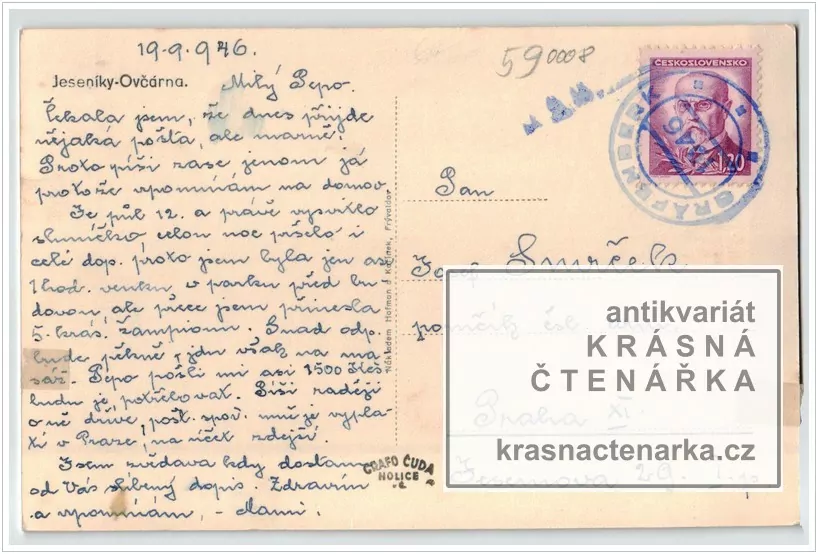 19.9.946.
590008
Jeseníky-Ovčárna.
Milý Pepo.
Čekala jsem, že dnes přijde
nějaká pošta, ale marně.
Proto píši zase jenom já
protože vzpomínám na domov
Je půl 12. a právě vysvitlo
sluníčko celou noc pršelo i
celé dop. proto jsem byla jen asi
1 hod. venku v parku před bu-
dovou, ale přece jsem přinesla
5 krás. žampionů. Snad odp.
bude pěkně, jdu však na ma-
sáž. Pepo pošli mi asi 1500 Kčs
budu je potřebovat. Píši raději
o ně dříve, pošt. spoř. mně je vypla-
tí v Praze, na účet zdejší.
Jsem zvědava kdy dostanu
od Vás slíbený dopis. Zdravím
a vzpomínám, - Mami.
Nákladem Hofman a Kořínek, Frývaldov
GRAFO ČUDA
HOLICE
ČESKOSLOVENSKO
1.20
GRÄFENBERK
Pan
Josef Smrček
Praha XI.
antikvariát
KRÁSNÁ
ČTENÁŘKA
krasnactenarka.cz